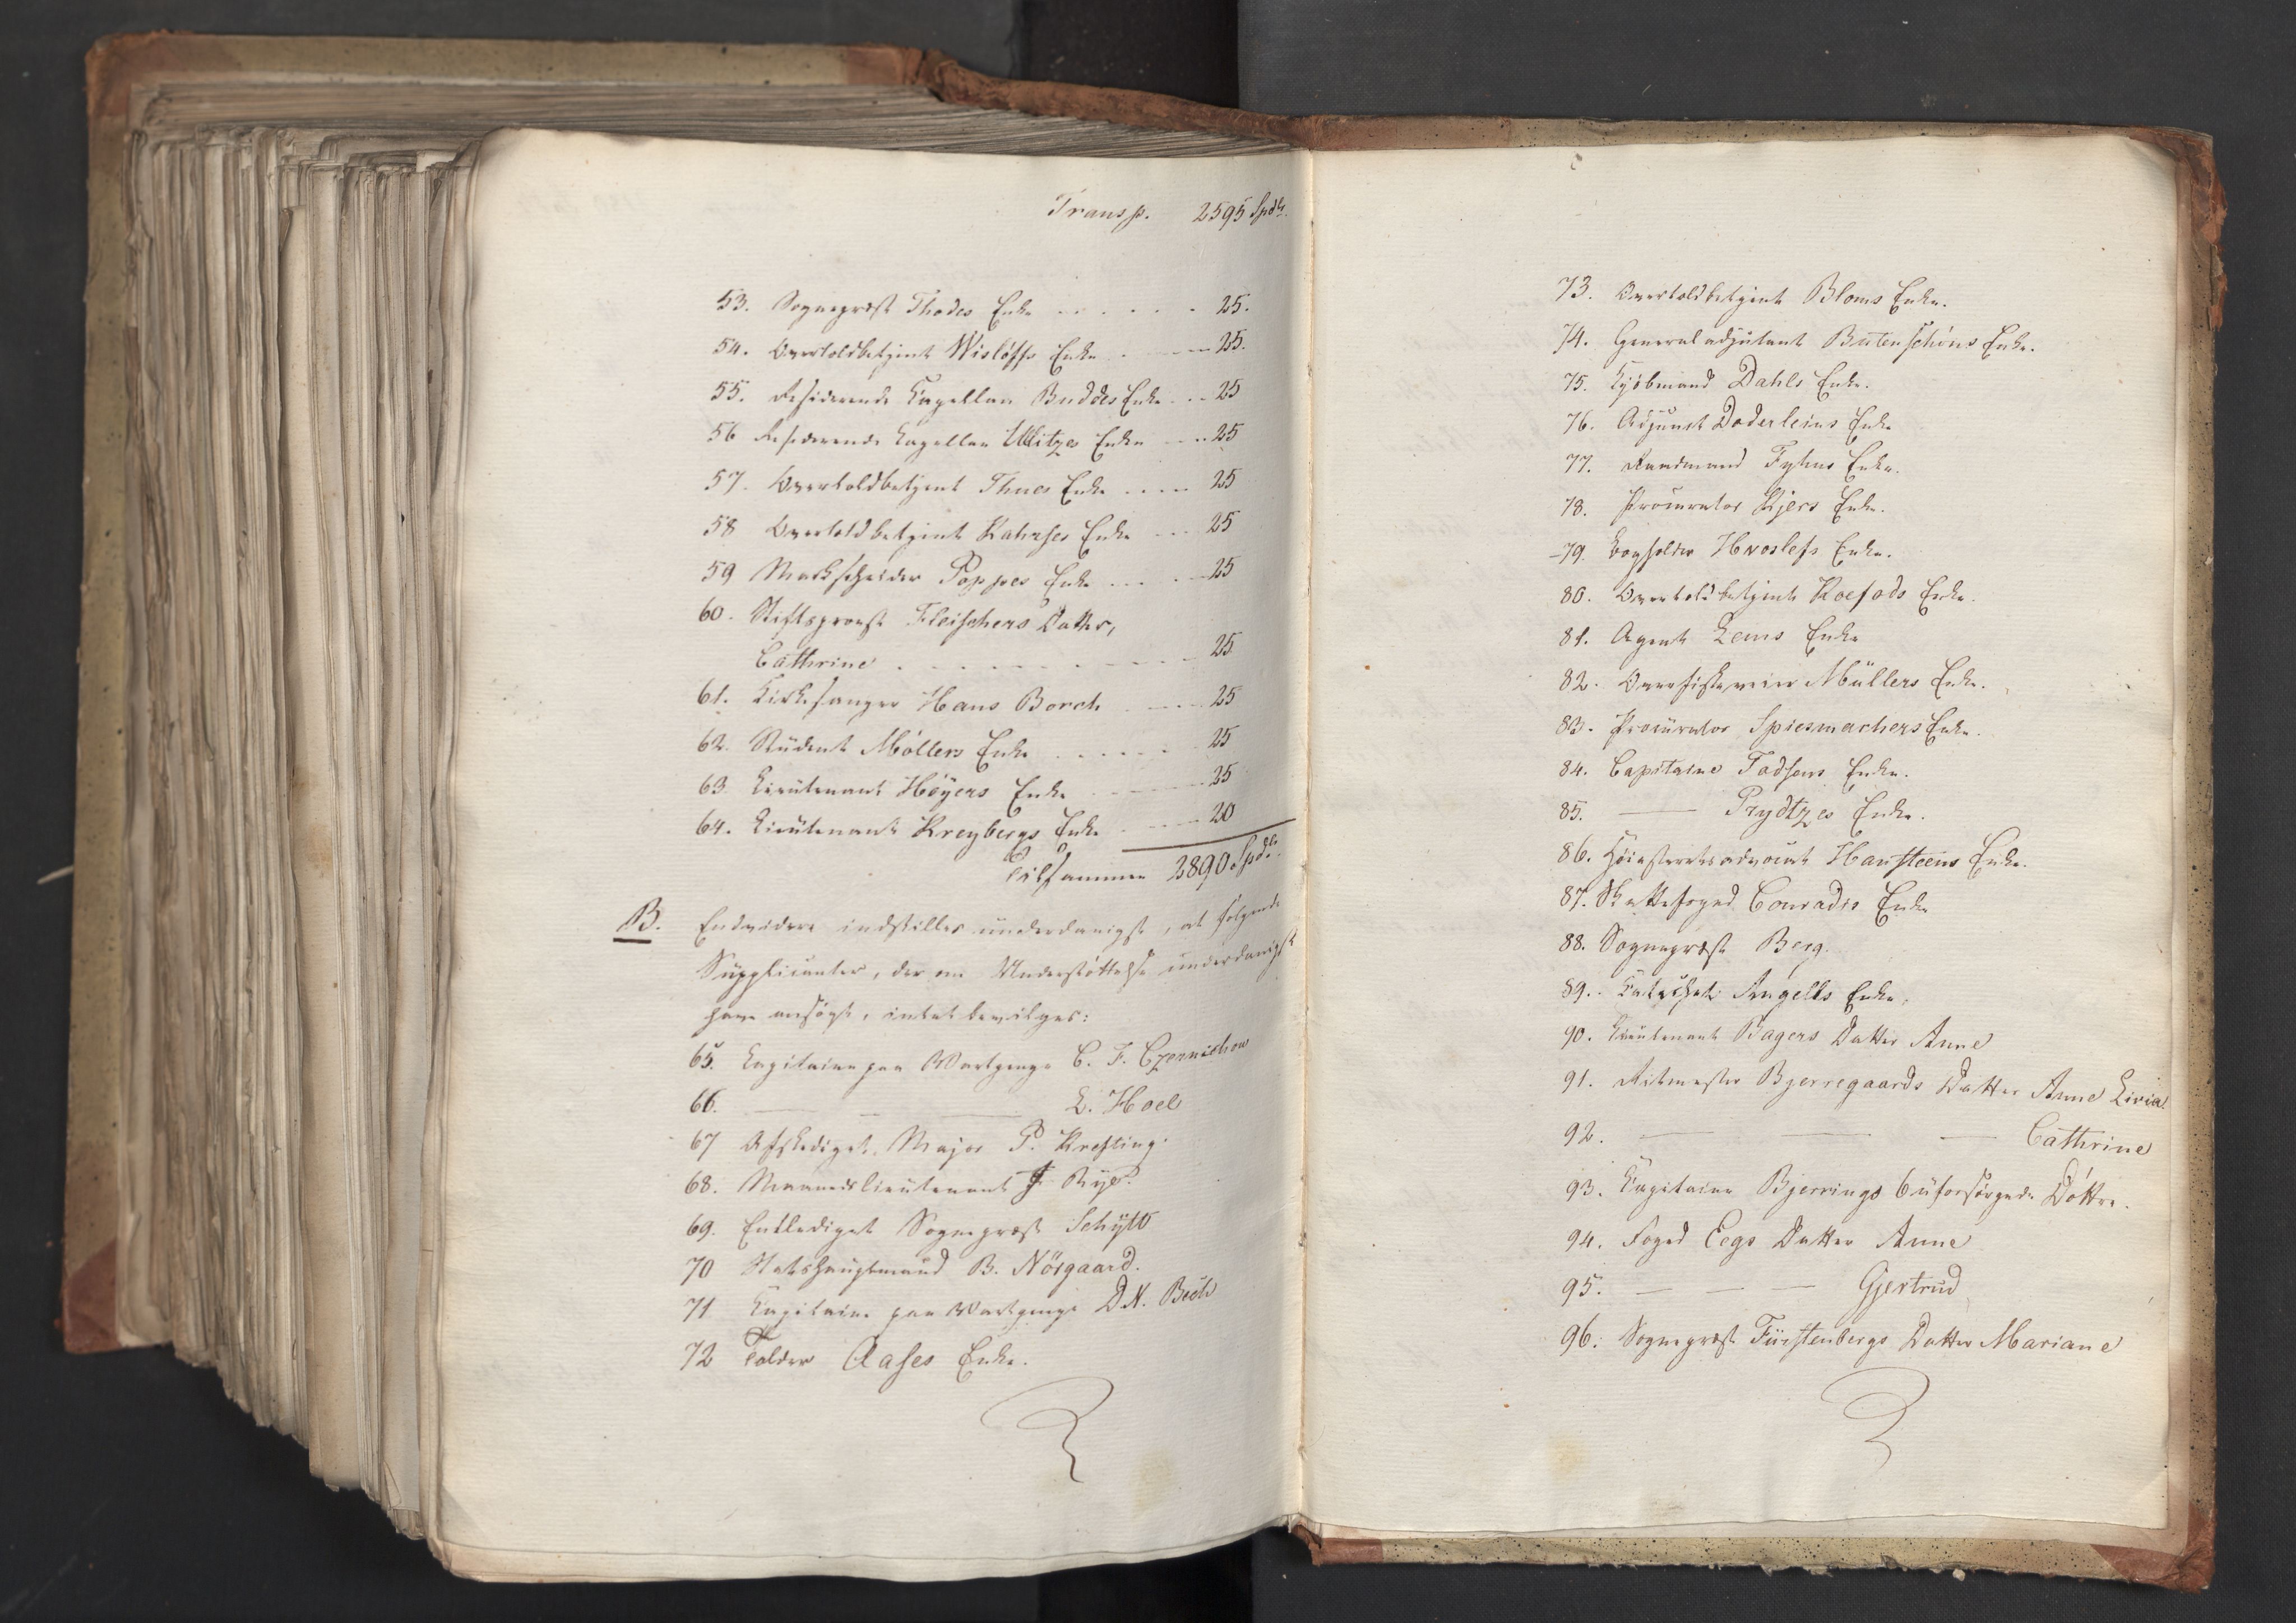 Transp. 2595 Spdlr.
53. Sognepræst Thodes Enke . . . . . . 25.
54. Overtoldbetjent Wisløffs Enke . . . 25.
55. Residerende Kapellan Buddes Enke . . . 25
56 Residerende Kapellan Wlitzes Enke . . . 25
57. Overtoldbetjent Thues Enke . . . . 25
58 Overtoldbetjent Kahrses Enke . . . 25
59 Markscheider Poppes Enke . . . . . 25
60. Stiftsprovst Fleischers Datter,
Cathrine . . . . . . . . . 25
61. Kirkesanger Hans Borch . . . . 25
62. Student Møllers Enke . . . . . 25
63. Lieutenant Høyers Enke . . . . . 25
64. Lieutenant Kreybergs Enke . . . . 20
Tilsammen 2890 Spdlr.
B. Endvidere indstilles underdanigst, at følgende
Supplicanter, der om Understøttelse underdanigst
have ansøgt, intet bevilges:
65. Kapitaine paa Vartpenge C. F. Czernichow
66. — — — L. Hoel
67 Afskediget Major P. Krefting.
68. Maanedslieutenant J. Rye.
69. Entlediget Sognepræst Schytt
70 Statshauptmand B. Nörgaard.
71 Kapitaine paa Vartpenge D. N. Bech
72 Tolder Aases Enke.
73. Overtoldbetjent Bloms Enke.
74. Generaladjutant Butenschöns Enke.
75. Kjöbmand Dahls Enke.
76. Adjunct Döderleins Enke
77. Raadmand Fyhns Enke.
78. Procurator Kjers Enke.
79. Bogholder Hvoslefs Enke.
80. Overtoldbetjent Koefods Enke.
81. Agent Lems Enke
82. Overfiskeveier Müllers Enke.
83. Procurator Spiesmachers Enke.
84. Capitaine Todsens Enke.
85. — Prydtzes Enke.
86. Høiesteretsadvocat Hansteens Enke.
87. Skattefoged Conradis Enke
88. Sognepræst Berg.
89. Katechet Angells Enke.
90. Lieutenant Bagers Datter Anne
91. Ritmester Bjerregaards Datter Anne Livia
92. — — — Cathrine
93. Kapitaine Bjerrings 6 uforsørgede Døttre.
94. Foged Eegs Datter Anne
95. — — — Gjertrud
96. Sognepræst Fürstenbergs Datter Mariane